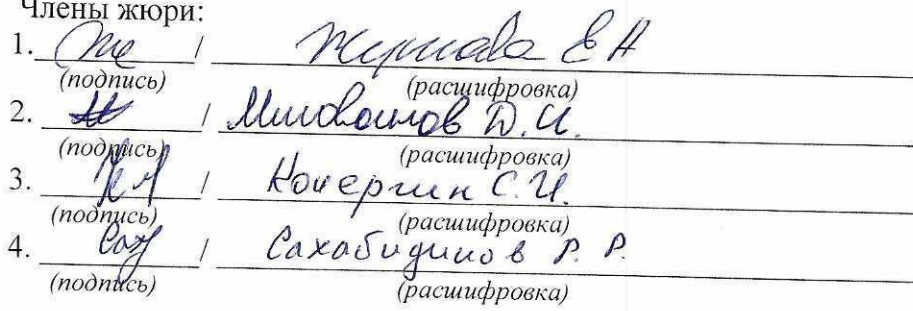 Члены жюри:
1. / Е А
(подпись) (расшифровка)
2. / Миловацнов Д. И.
(подпись) (расшифровка)
3. / Кочергин С. И.
(подпись) (расшифровка)
4. Сах / Сахабидинов Р. Р.
(подпись) (расшифровка)